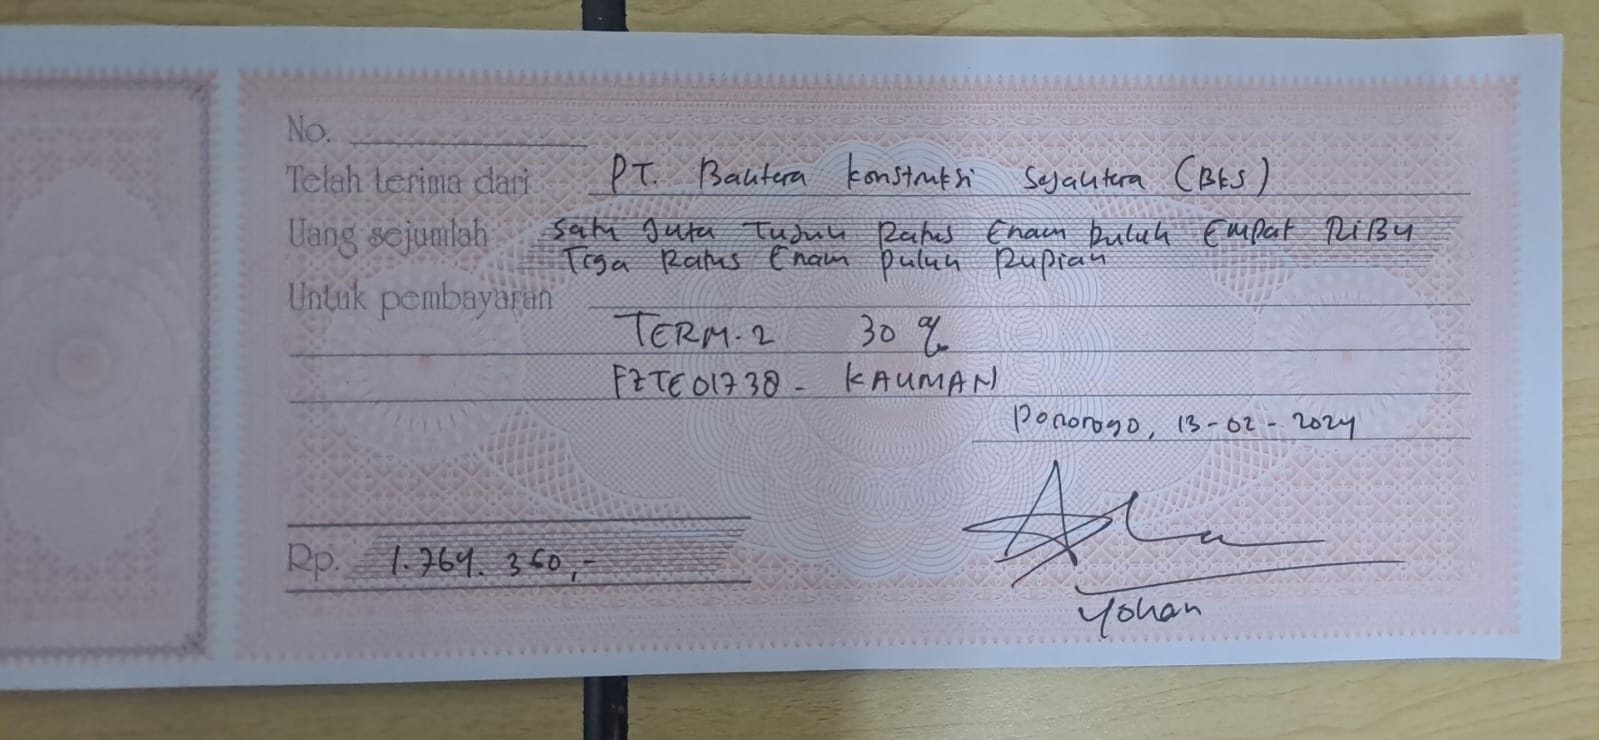 No.
Telah terima dari PT. Bahtera Konstruksi Sejahtera (BKS)
Uang sejumlah Satu Juta Tujuh Ratus Enam Puluh Empat RiBu
Tiga Ratus Enam Puluh Rupiah
Untuk pembayaran
TERM-2 30 %
FZTE01738 - KAUMAN
Ponorogo, 13-02-2024
Rp. 1.764.360,-
Yohan